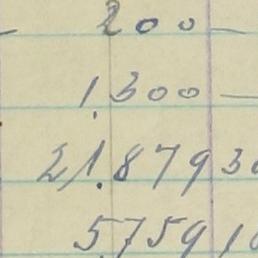 200 —
1.300 —
21.879 30
5.759 10